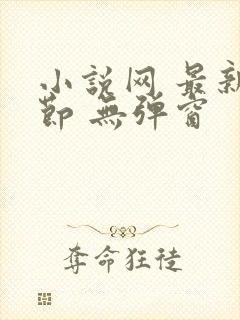 小説网 最新
節 無弹窗
夺命狂徒